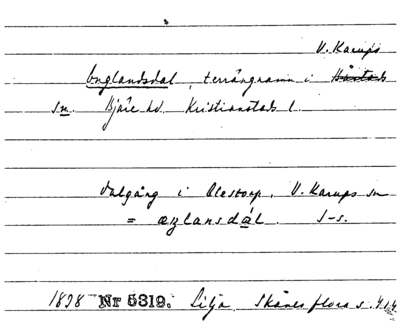 V. Karups
Englandsdal, terrängnamn i Båstads
sn. Bjäre hd. Kristianstads l.
Dalgång i Olestorp, V. Karups sn
= æŋlansdál. S-s.
1898 Nr 5319. Lilja Skånes flora s. 414